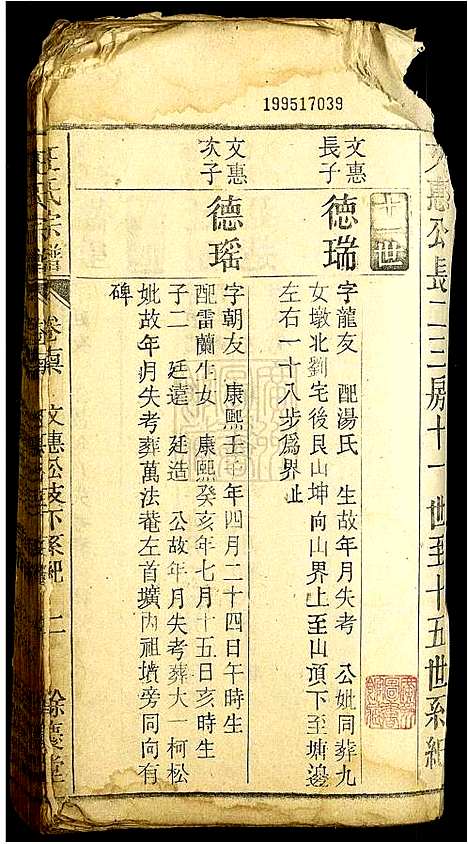 199517039
文惠公長二三房十一世至十五世系紀
十一世
文惠
長子
德瑞
字龍友 配湯氏 生故年月失考 公妣同葬九
女墩北劉宅後艮山坤向山界上至山頂下至塘邊
左右一十八步爲界址
文惠
次子
德瑶
字朝友 康熙壬年四月二十四日午時生
配雷蘭生女 康熙癸亥年七月十五日亥時生
子二 廷遠 廷造 公故年月失考葬大一柯松
妣故年月失考葬萬法菴左首壙內祖墳旁同向有
碑
汪氏宗譜
文惠公支下系紀
二
餘慶堂